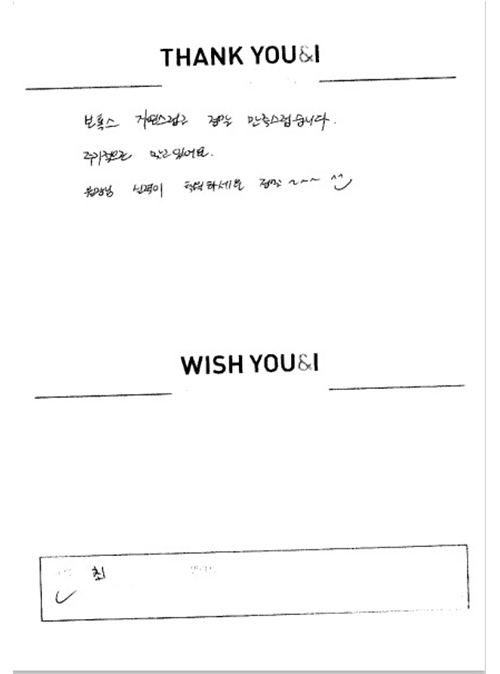 THANK YOU&I
보톡스 자연스럽고 정말 만족스럽습니다.
주기적으로 맞고 있어요.
원장님 실력이 탁월하세요 정말 ~~~ ^^
WISH YOU&I
최